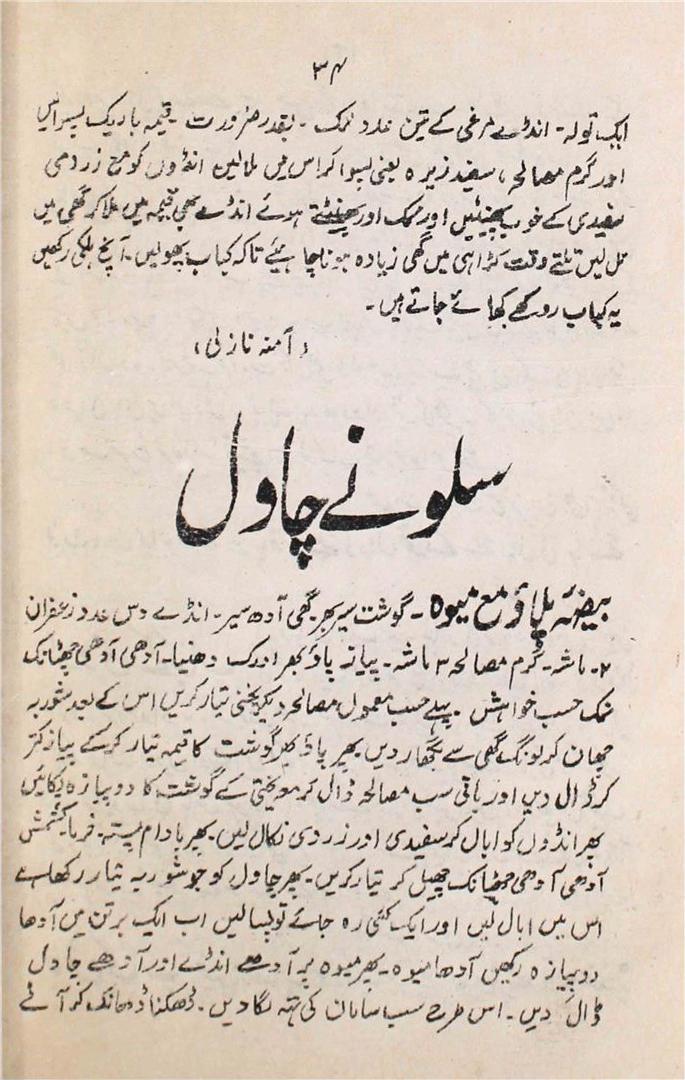 ۳۴
ایک تولہ۔ انڈے مرغی کے تین عدد نمک۔ بقدر ضرورت۔ قیمہ باریک پسوالیں
اور گرم مصالحہ، سفید زیرہ یعنی پسوا کر اس میں ملالیں انڈوں کو مع زردی
سفیدی کے خوب پھینٹیں اور نمک اور پھینٹتے ہوئے انڈے بھی قیمہ میں ملا کر گھی میں
تل لیں تلتے وقت کڑاہی میں گھی زیادہ ہونا چاہیئے تاکہ کباب پھولیں۔ آنچ ہلکی رکھیں
یہ کباب روکھے کھائے جاتے ہیں۔
(آمنہ نازلی)
سلونے چاول
بیضہ پلاؤ مع میوہ۔ گوشت سیر بھر گھی آدھ سیر۔ انڈے دس عدد زعفران
۲۔ ماشہ۔ گرم مصالحہ ۳ ماشہ۔ پیاز پاؤ بھر ادرک دھنیا۔ آدھی آدھی چھٹانک
نمک حسب خواہش۔ پہلے حسب معمول مصالحہ دیکر یخنی تیار کریں اس کے بعد شوربہ
چھان کر لونگ گھی سے بگھار دیں پھر پاؤ بھر گوشت کا قیمہ تیار کر کے پیاز کتر
کر ڈال دیں اور باقی سب مصالحہ ڈال کر معہ یخنی کے گوشت کا دوپیازہ پکائیں
پھر انڈوں کو ابال کر سفیدی اور زردی نکال لیں۔ پھر بادام پستہ۔ کشمش
آدھی آدھی چھٹانک چھیل کر تیار کریں۔ پھر چاول کو جو شوربہ تیار رکھا ہے
اس میں ابال لیں اور ایک کنی رہ جائے تو پسا لیں اب ایک برتن میں آدھا
دوپیازہ رکھیں آدھا میوہ۔ پھر میوہ پر آدھے انڈے اور آدھے چاول
ڈال دیں۔ اس طرح سب سامان کی تہ لگا دیں۔ ڈھکنا ڈھانک کر آٹے